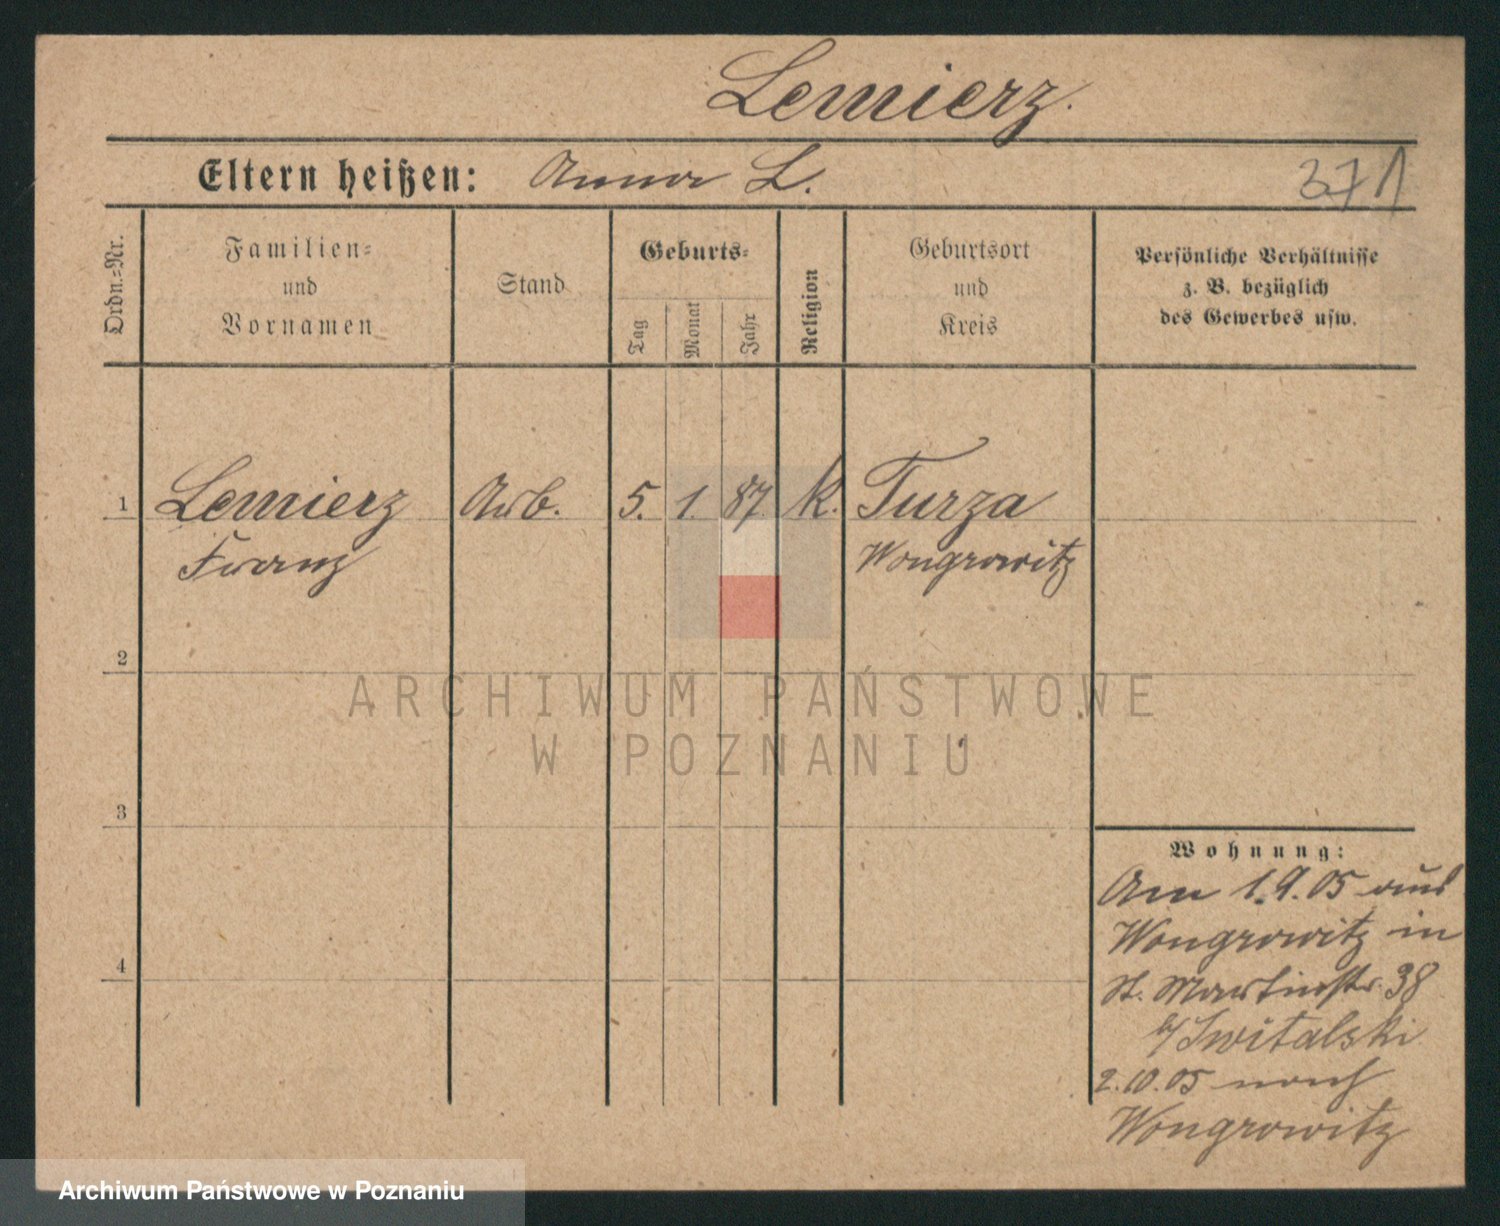 Lemierz.
Eltern heißen: Anna L.
371
Ordn.-Nr.
Familien-
und
Vornamen
Stand
Geburts-
Tag
Monat
Jahr
Religion
Geburtsort
und
Kreis
Persönliche Verhältnisse
z. B. bezüglich
des Gewerbes usw.
1 Lemierz Arb. 5. 1. 87 k. Turza
Franz Wongrowitz
2
ARCHIWUM PAŃSTWOWE
W POZNANIU
3
Wohnung:
Am 1.9.05 aus
Wongrowitz in
St. Martinstr. 38
b/Switalski
2.10.05 nach
Wongrowitz
4
Archiwum Państwowe w Poznaniu